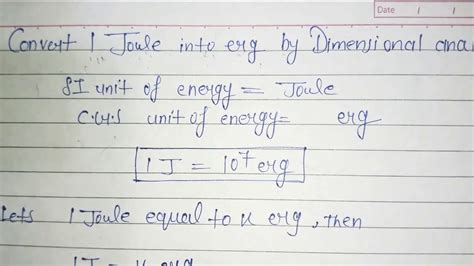 Date / /
Convert 1 Joule into erg by Dimensional ana
SI unit of energy = Joule
C.G.S unit of energy= erg
1 J = 10⁷ erg
Lets 1 Joule equal to u erg, then
1J = u erg